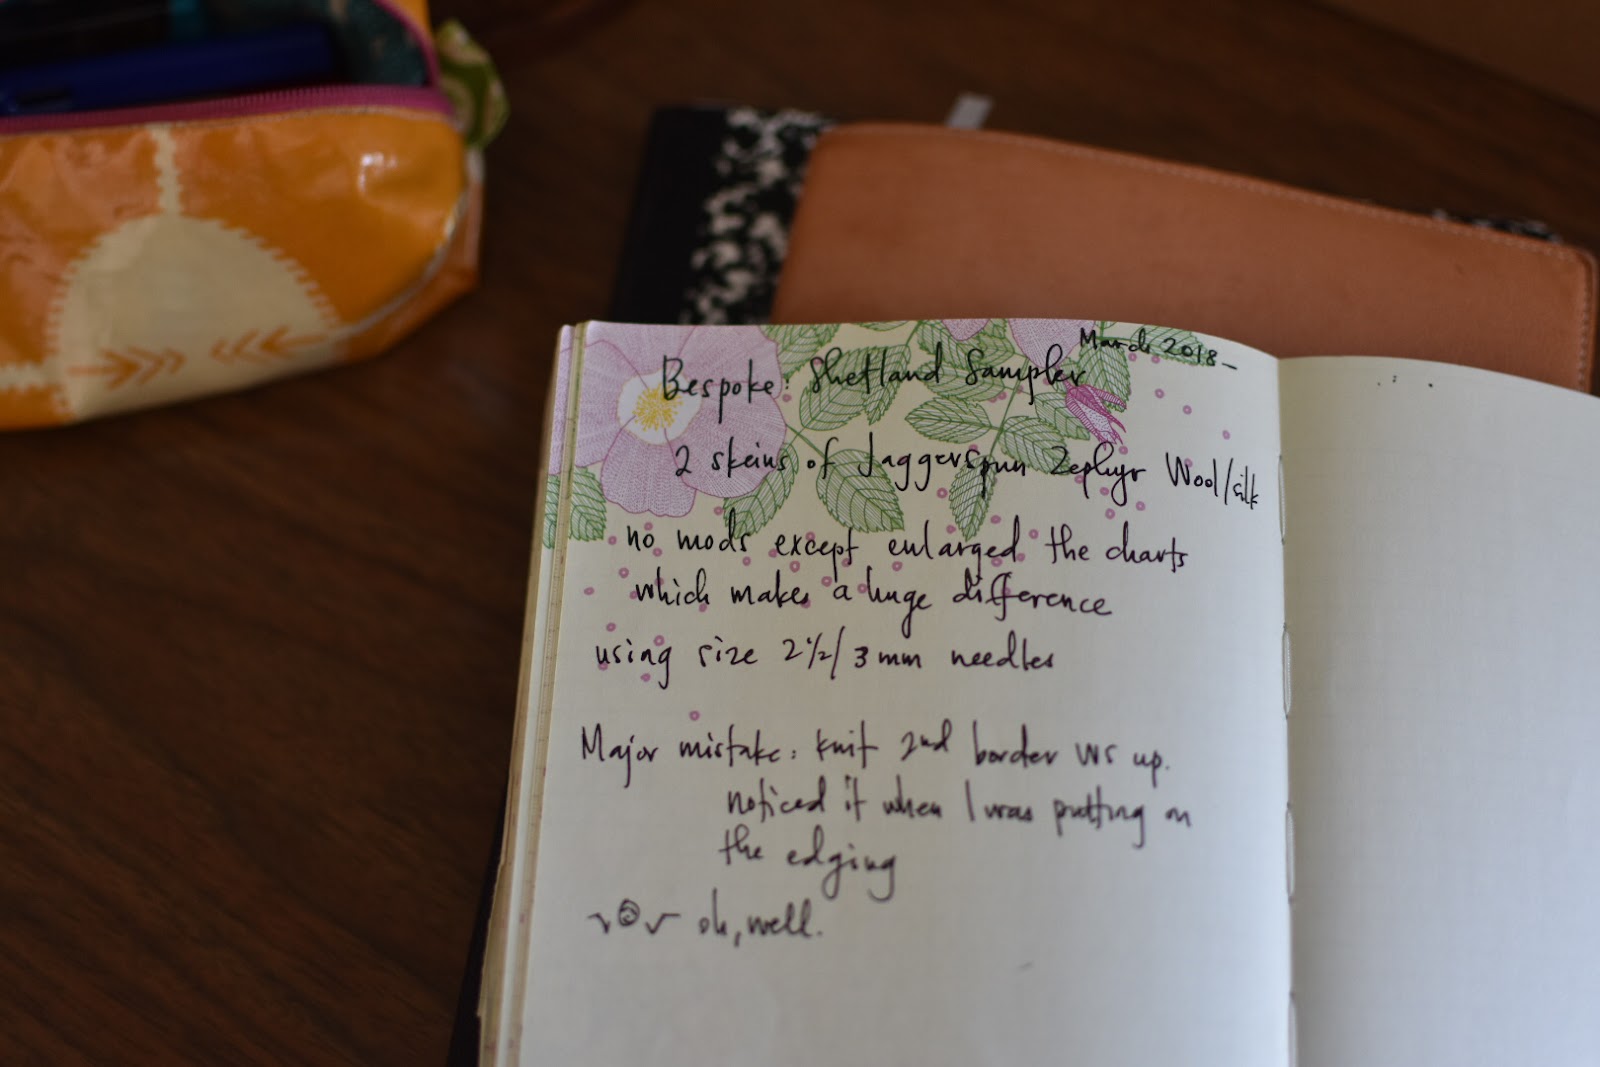 March 2018–
Bespoke: Shetland Sampler
2 skeins of Jaggerspun Zephyr Wool/silk
no mods except enlarged the charts
which makes a huge difference
using size 2½/3mm needles
Major mistake: knit 2nd border WS up.
noticed it when I was putting on
the edging
oh, well.